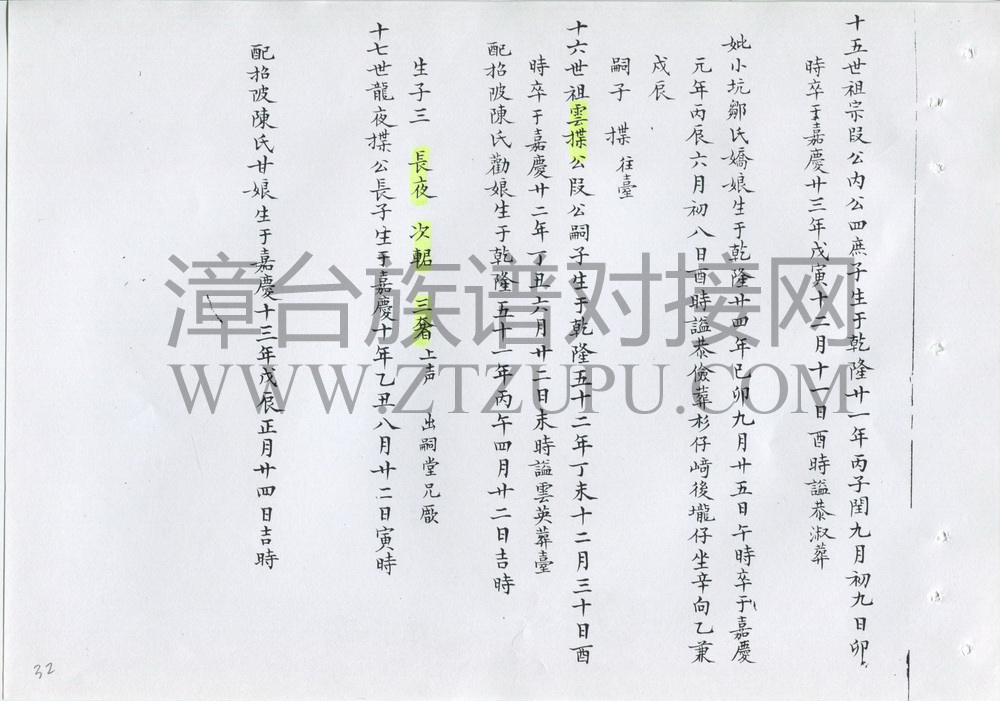 十五世祖宗段公內公四庶子生于乾隆廿一年丙子閏九月初九日卯
時卒于嘉慶廿三年戊寅十二月十一日酉時謚恭淑葬
妣小坑鄒氏嬌娘生于乾隆廿四年己卯九月廿五日午時卒于嘉慶
元年丙辰六月初八日酉時謚恭儉葬杉仔崎後壠仔坐辛向乙兼
戌辰
嗣子 揲 往臺
十六世祖雲揲公段公嗣子生于乾隆五十二年丁未十二月三十日酉
時卒于嘉慶廿二年丁丑六月廿二日未時謚雲英葬臺
配招陂陳氏勸娘生于乾隆五十一年丙午四月廿二日吉時
生子三 長夜 次輥 三奢 上声 出嗣堂兄廄
十七世龍夜揲公長子生于嘉慶十年乙丑八月廿二日寅時
配招陂陳氏甘娘生于嘉慶十三年戊辰正月廿四日吉時
漳台族谱对接网
WWW.ZTZUPU.COM
32